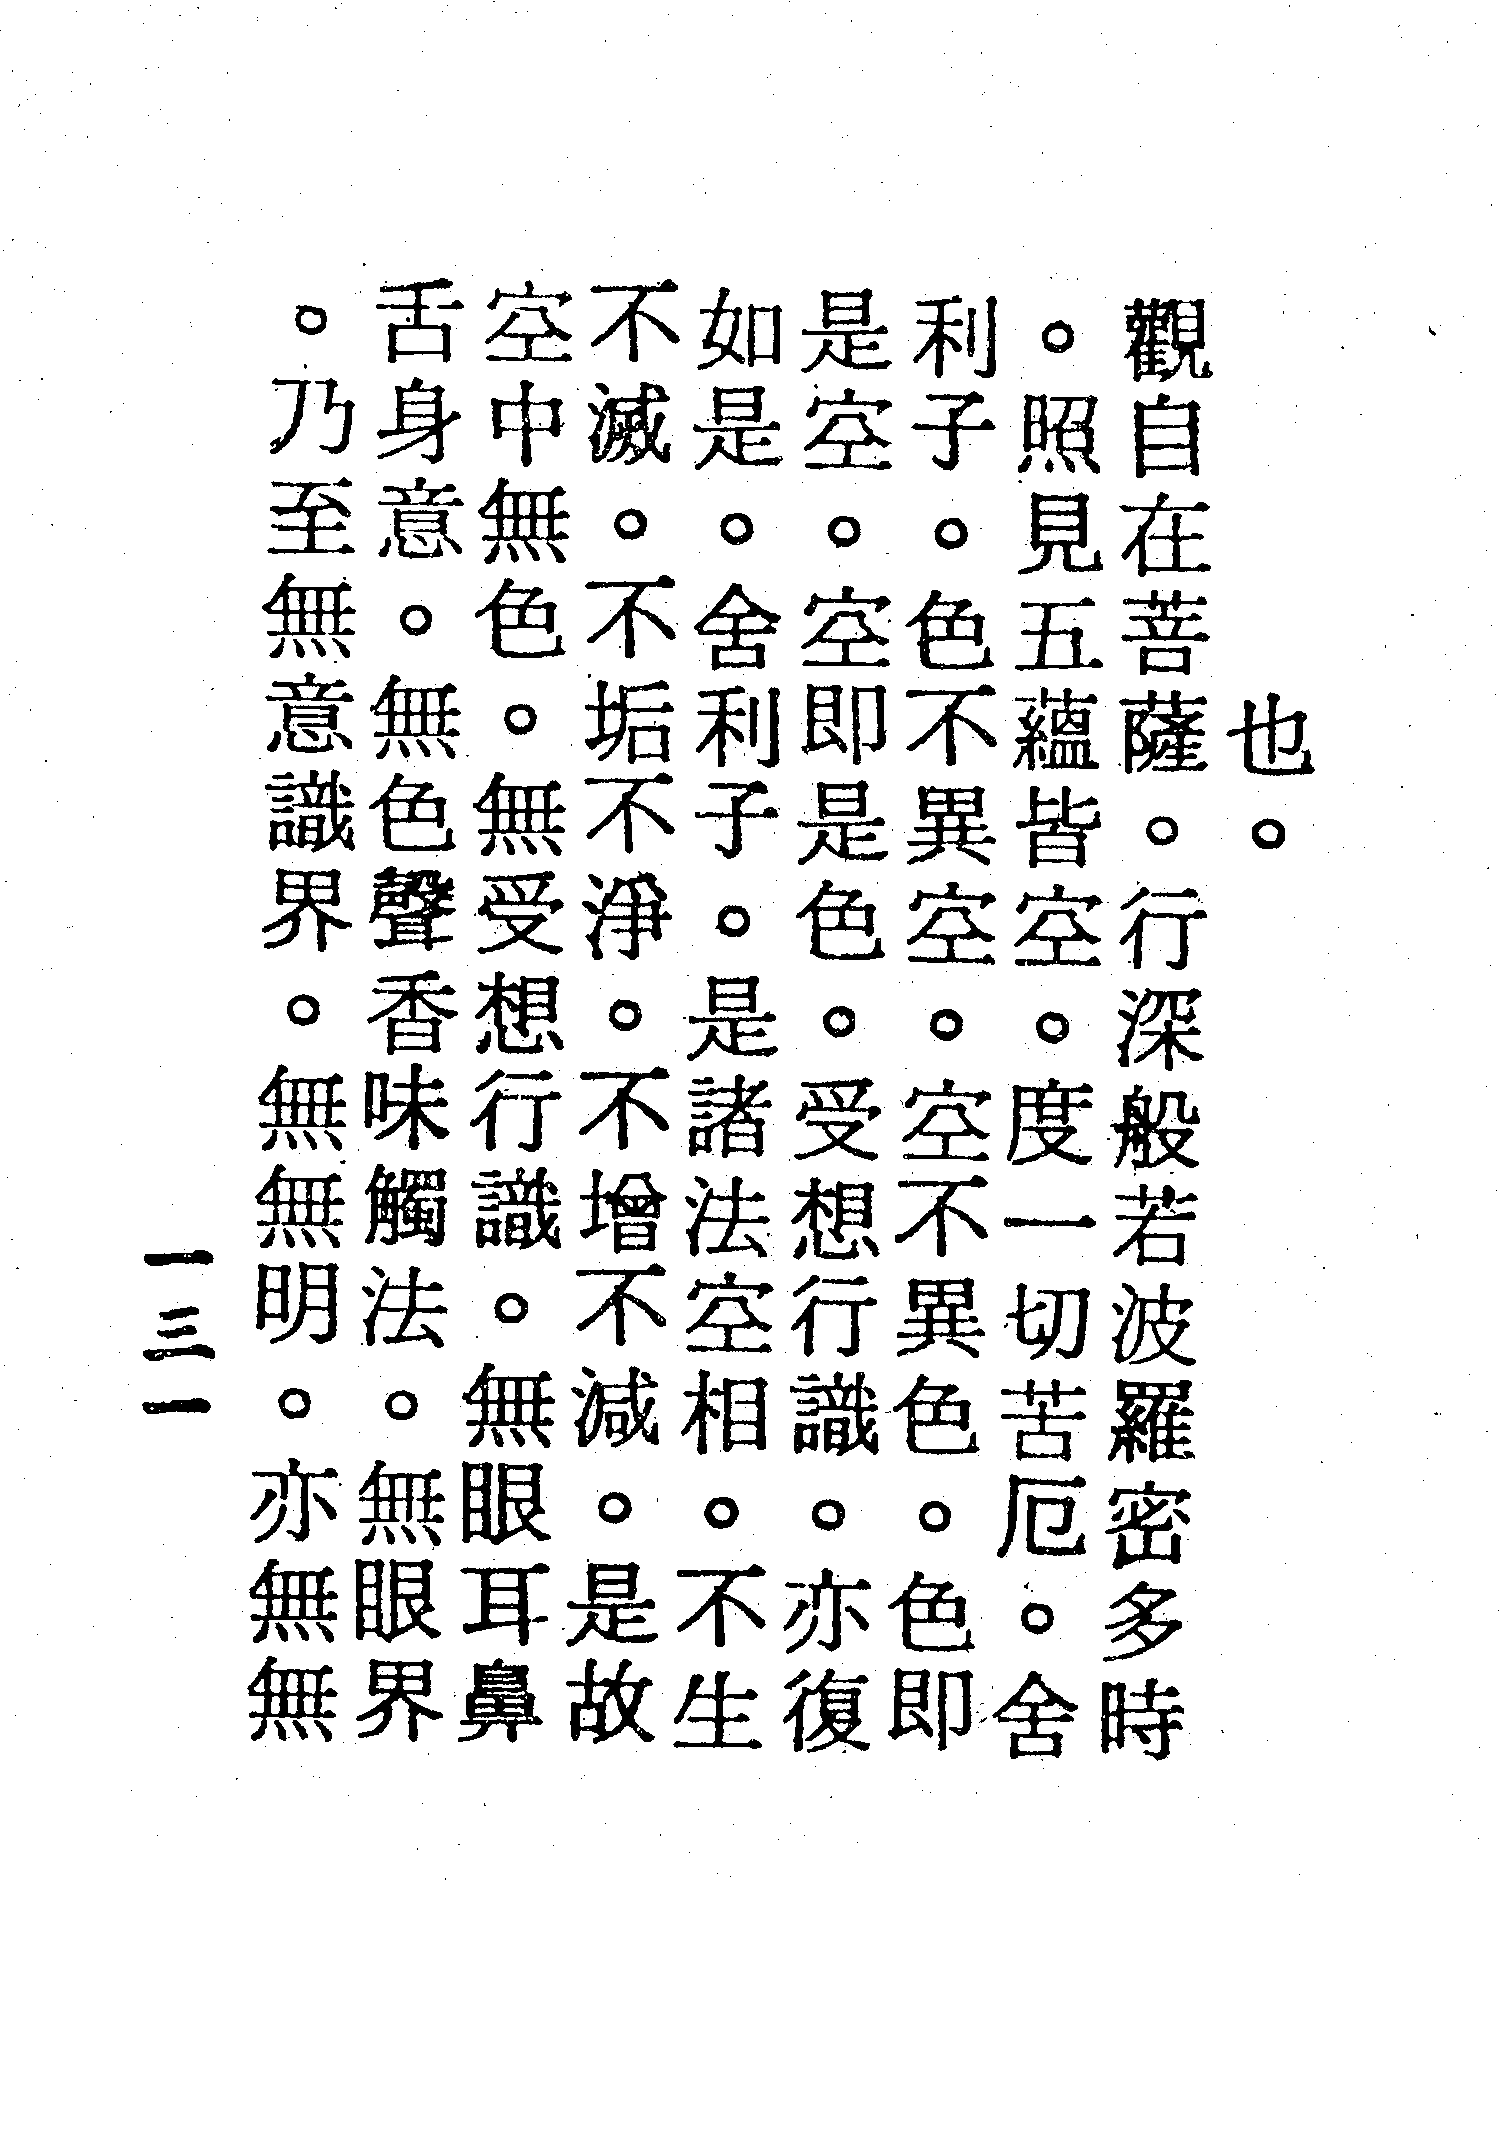 也。
觀自在菩薩。行深般若波羅密多時
。照見五蘊皆空。度一切苦厄。舍
利子。色不異空。空不異色。色即
是空。空即是色。受想行識。亦復
如是。舍利子。是諸法空相。不生
不滅。不垢不淨。不增不減。是故
空中無色。無受想行識。無眼耳鼻
舌身意。無色聲香味觸法。無眼界
。乃至無意識界。無無明。亦無無
一三一